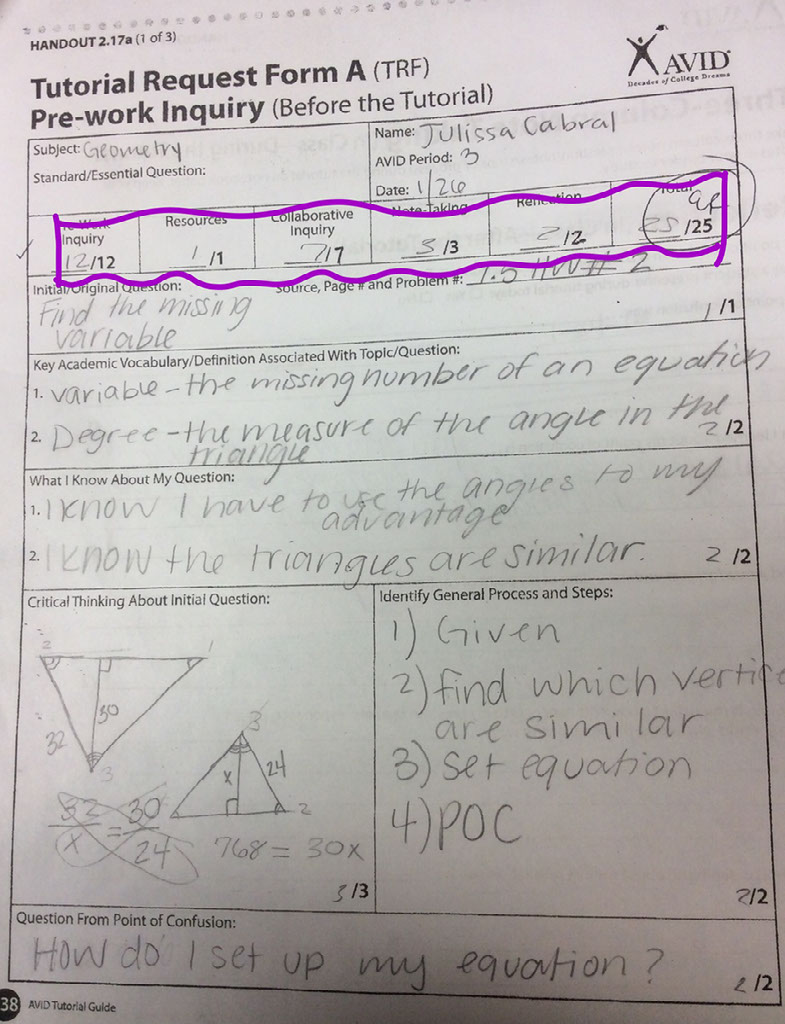 HANDOUT 2.17a (1 of 3)
AVID
Decades of College Dreams
Tutorial Request Form A (TRF)
Pre-work Inquiry (Before the Tutorial)
Subject: Geometry
Standard/Essential Question:
Name: Julissa Cabral
AVID Period: 3
Date: 1/26
Inquiry
12/12
Resources
1/1
Collaborative
Inquiry
7/7
Note-Taking
3/3
Reflection
2/2
Total
25/25
Initial/Original Question:
Source, Page # and Problem #: 7.5 HW # 2
Find the missing
variable
1/1
Key Academic Vocabulary/Definition Associated With Topic/Question:
1. variable - the missing number of an equation
2. Degree - the measure of the angle in the
triangle
2/2
What I Know About My Question:
1. I know I have to use the angles to my
advantage
2. I know the triangles are similar.
2/2
Critical Thinking About Initial Question:
2 1
30
32
3
3
x 24
2
32/x = 30/24
768 = 30x
3/3
Identify General Process and Steps:
1) Given
2) find which vertice
are similar
3) Set equation
4) POC
2/2
Question From Point of Confusion:
How do I set up my equation?
2/2
38 AVID Tutorial Guide